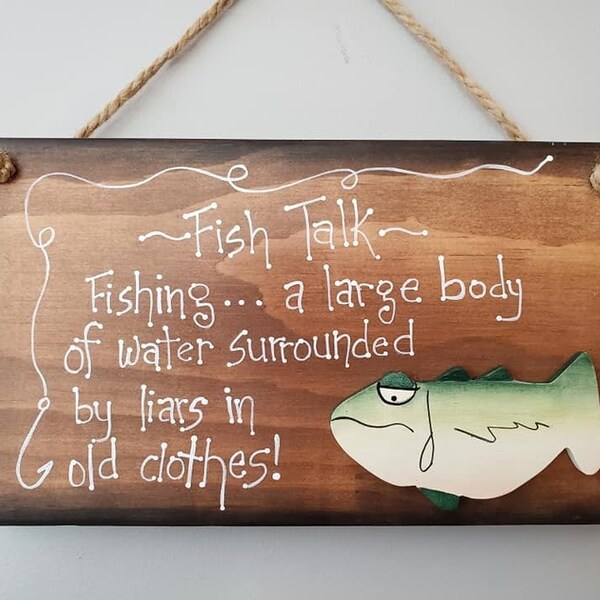 ~Fish Talk~
Fishing... a large body
of water surrounded
by liars in
old clothes!